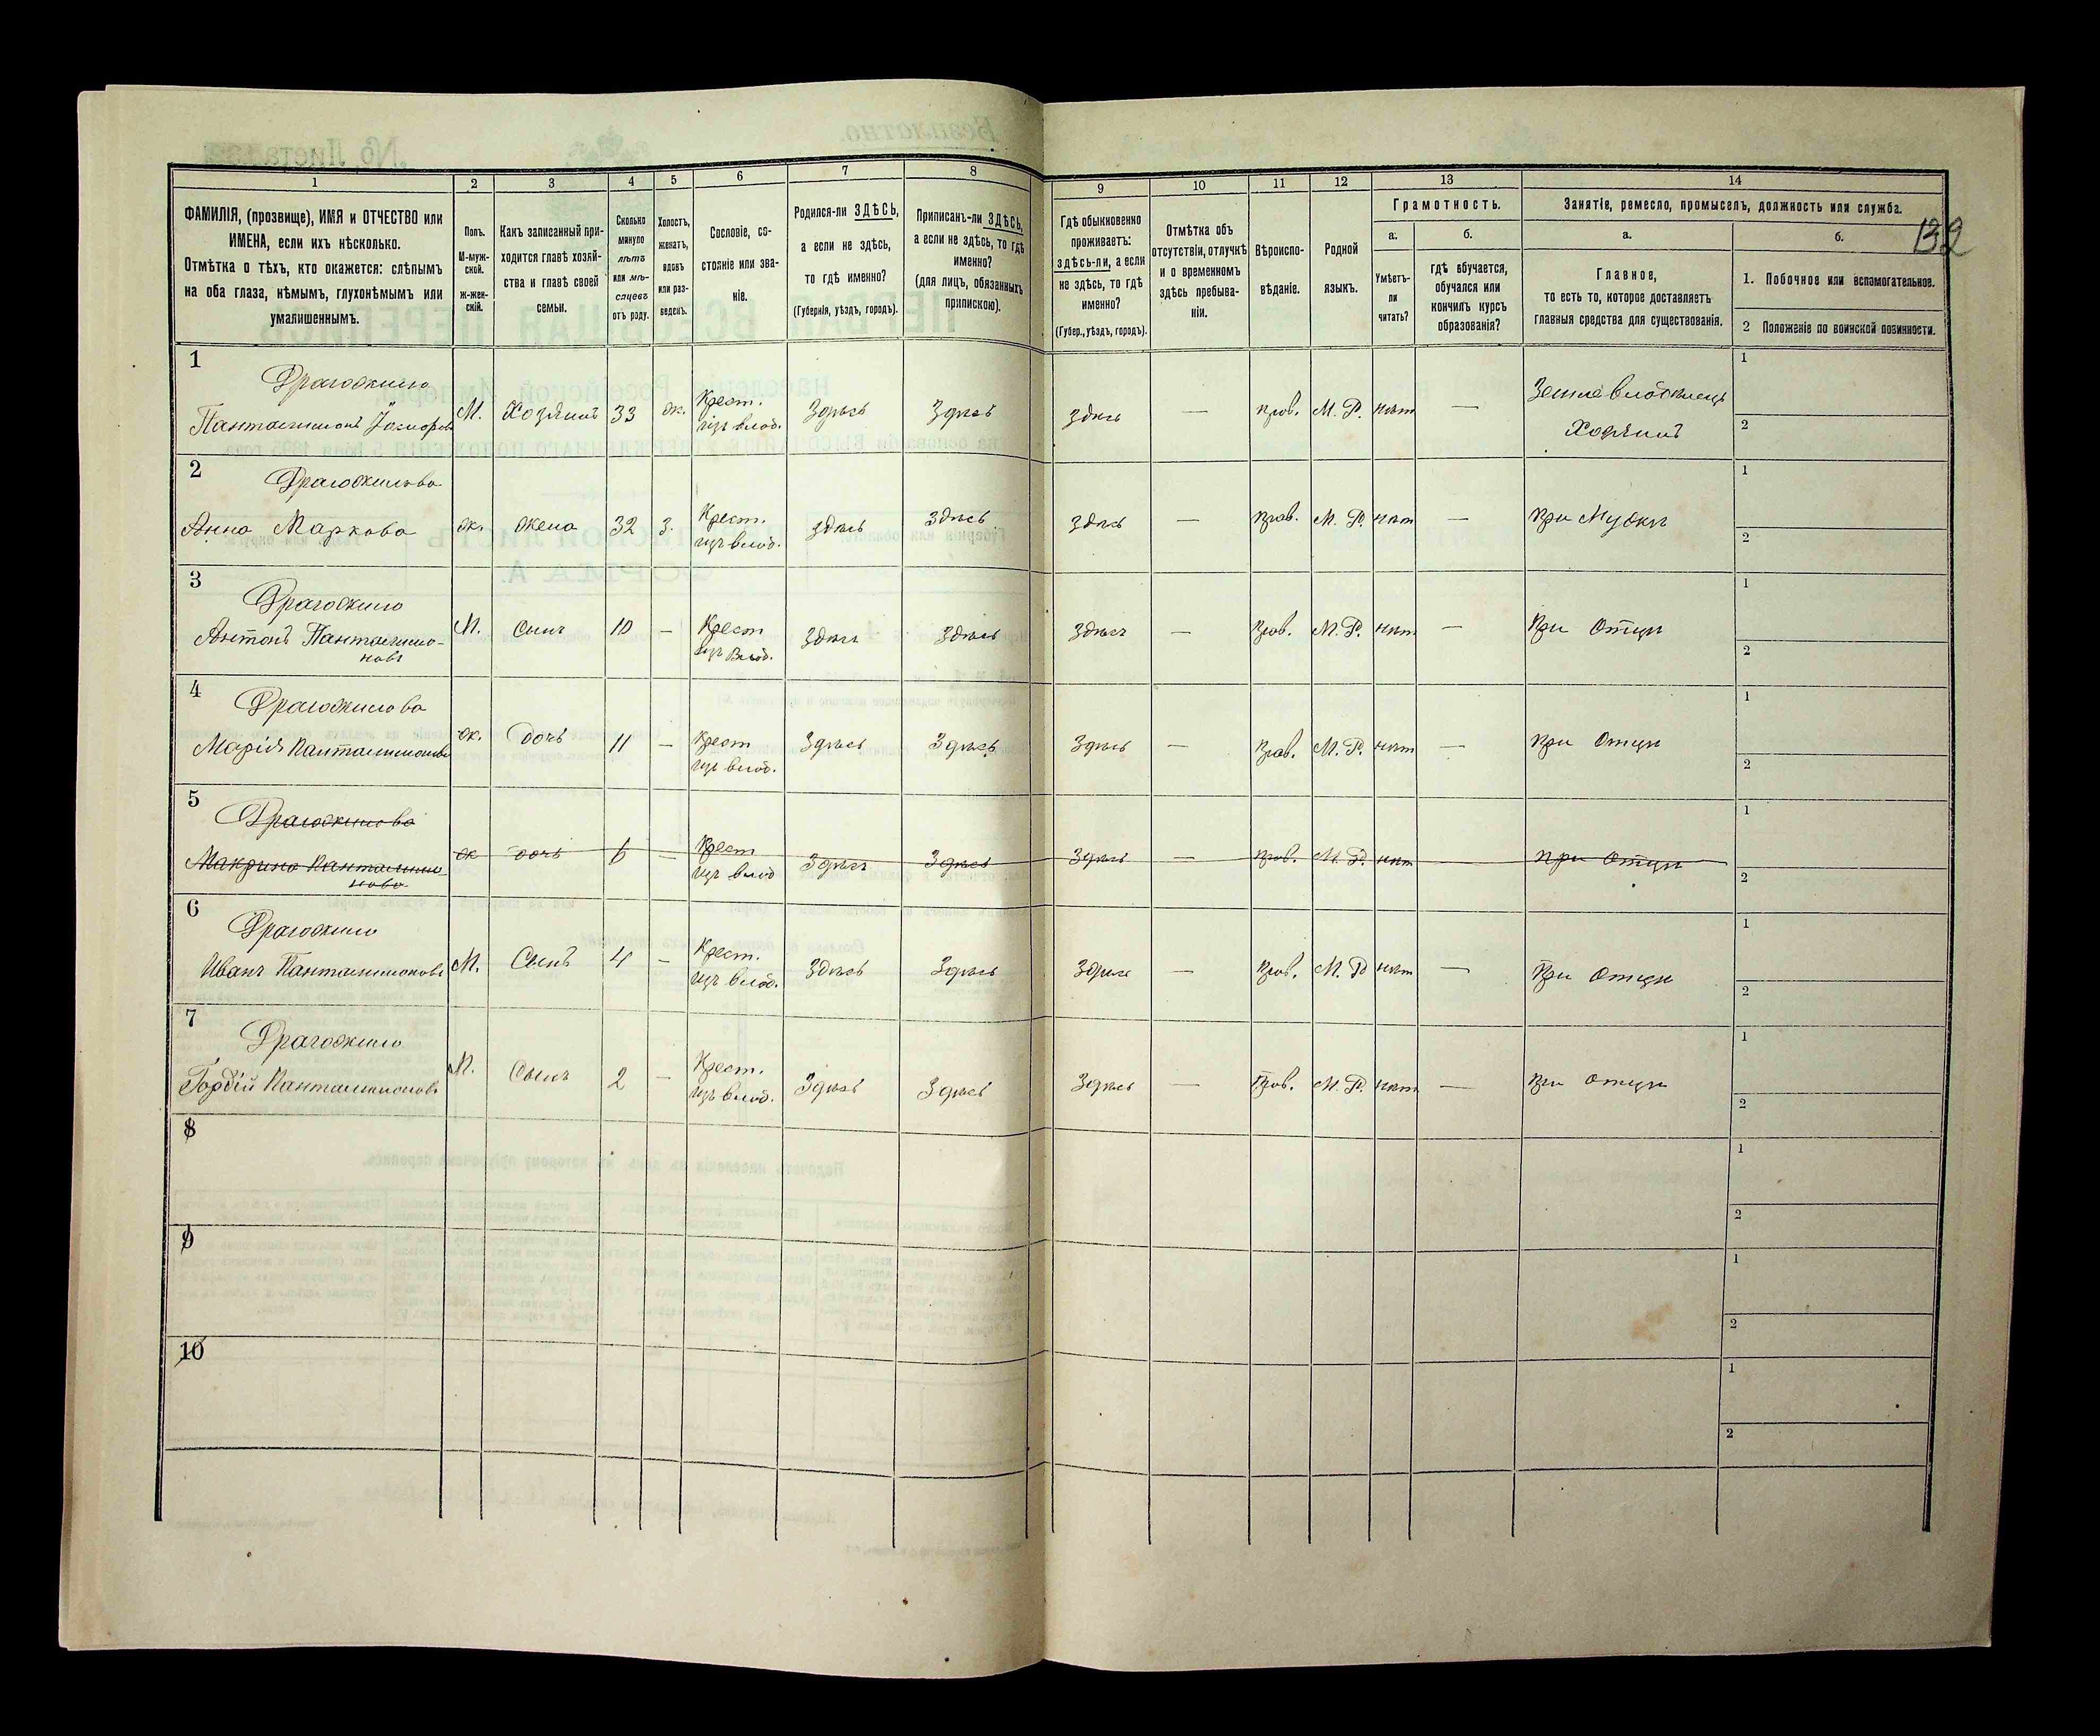 1
2
3
4
5
6
7
8
9
10
11
12
13
14
ФАМИЛІЯ, (прозвище), ИМЯ и ОТЧЕСТВО или
ИМЕНА, если ихъ нѣсколько.
Отмѣтка о тѣхъ, кто окажется: слѣпымъ
на оба глаза, нѣмымъ, глухонѣмымъ или
умалишеннымъ.
Полъ.
М-муж-
ской.
ж-жен-
скій.
Какъ записанный при-
ходится главѣ хозяй-
ства и главѣ своей
семьи.
Сколько
минуло
лѣтъ
или мѣ-
сяцевъ
отъ роду.
Холостъ,
женатъ,
вдовъ
или раз-
веденъ.
Сословіе, со-
стояніе или зва-
ніе.
Родился-ли ЗДѢСЬ,
а если не здѣсь,
то гдѣ именно?
(Губернія, уѣздъ, городъ).
Приписанъ-ли ЗДѢСЬ,
а если не здѣсь, то гдѣ
именно?
(для лицъ, обязанныхъ
припискою).
Гдѣ обыкновенно
проживаетъ:
здѣсь-ли, а если
не здѣсь, то гдѣ
именно?
(Губер., уѣздъ, городъ).
Отмѣтка объ
отсутствіи, отлучкѣ
и о временномъ
здѣсь пребыва-
ніи.
Вѣроиспо-
вѣданіе.
Родной
языкъ.
Грамотность.
а.
б.
Умѣетъ-
ли
читать?
гдѣ обучается,
обучался или
кончилъ курсъ
образованія?
Занятіе, ремесло, промыселъ, должность или служба.
а.
б.
Главное,
то есть то, которое доставляетъ
главныя средства для существованія.
1. Побочное или вспомогательное.
2 Положеніе по воинской повинности.
132
1
Драгожило
Пантелимонъ
М. Хозяинъ 33 ж. Крест. Здѣсь Здѣсь Здѣсь — прав. М. Р. нѣтъ — Землевладѣлецъ
изъ влад.
Хозяинъ
1
2
2
Драгожилова
Анна Маркова ж. жена 32 З. Крест. здѣсь здѣсь здѣсь — прав. М. Р. нѣтъ — при Мужѣ
изъ влад.
1
2
3
Драгожило
Антонъ Пантелимо-
новъ
М. Сынъ 10 — Крест здѣсь здѣсь здѣсь — прав. М. Р. нѣтъ — при Отцѣ
изъ Влад.
1
2
4
Драгожилова
Марія Пантелимонова ж. Дочь 11 — Крест Здѣсь Здѣсь Здѣсь — прав. М. Р. нѣтъ — при Отцѣ
изъ влад.
1
2
5
Драгожилова
Макрина Пантелимо-
нова
ж дочь 6 — Крест Здѣсь Здѣсь Здѣсь — прав. М. Р. нѣтъ — при Отцѣ
изъ влад
1
2
6
Драгожило
Иванъ Пантелимоновъ М. Сынъ 4 — Крест. Здѣсь Здѣсь Здѣсь — прав. М. Р нѣтъ — При Отцѣ
изъ влад.
1
2
7
Драгожило
Гордій Пантелимоновъ М. Сынъ 2 — Крест. Здѣсь Здѣсь Здѣсь — прав. М. Р. нѣтъ — при отцѣ
изъ влад.
1
2
8
1
2
9
1
2
10
1
2